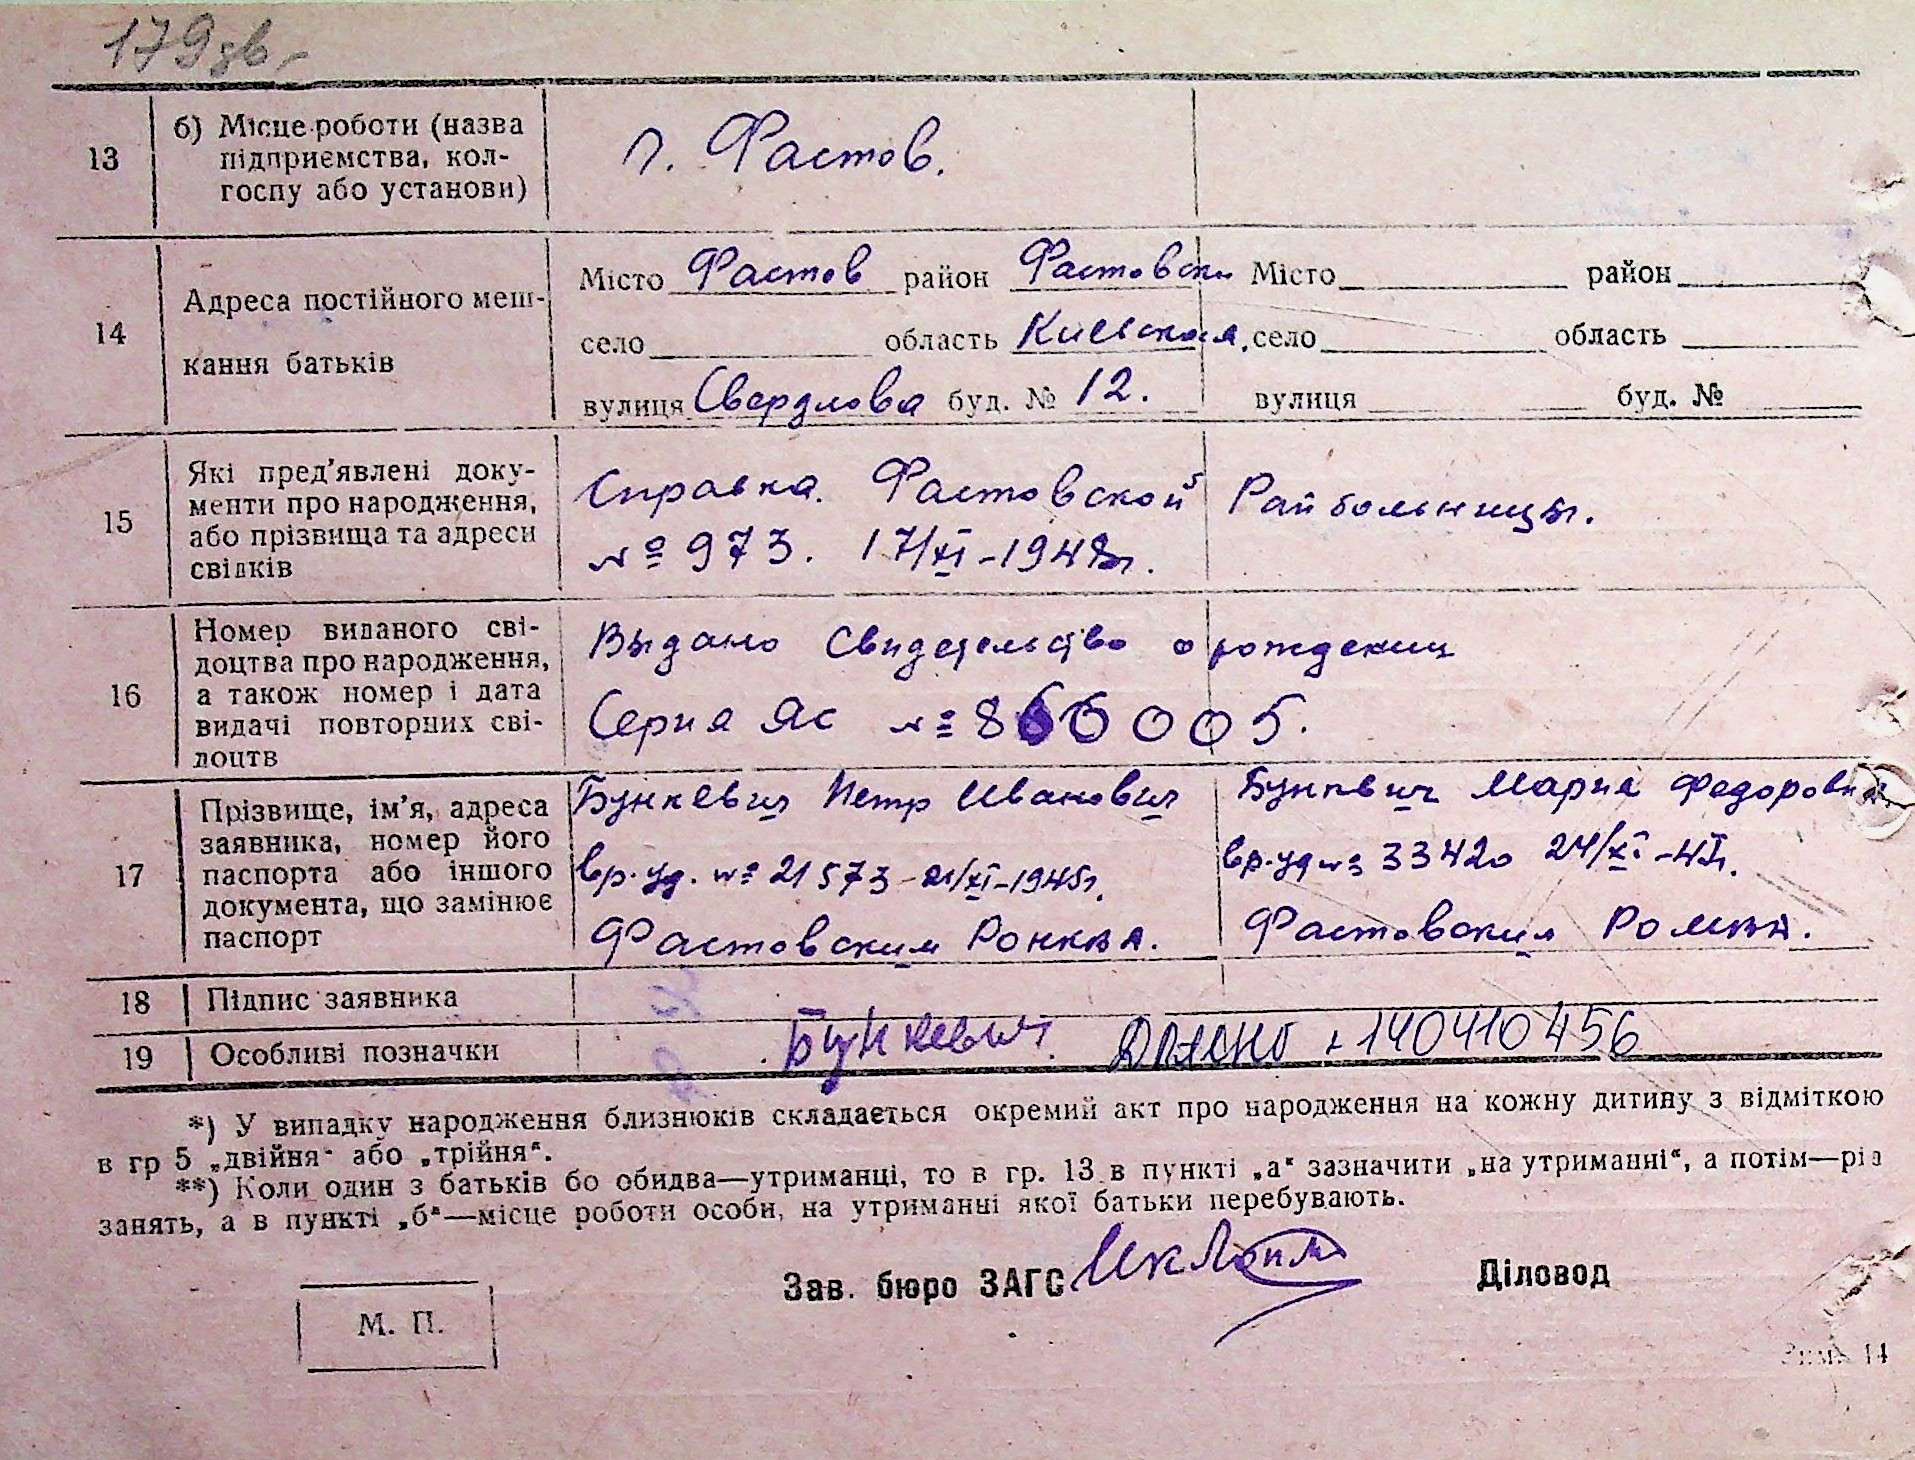 179зв.
13
б) Місце роботи (назва
підприємства, кол-
госпу або установи)
г. Фастов.
14
Адреса постійного меш-
кання батьків
Місто Фастов район Фастовски
село область Киевская.
вулиця Свердлова буд. № 12.
Місто район
село область
вулиця буд. №
15
Які пред'явлені доку-
менти про народження,
або прізвища та адреси
свідків
Справка. Фастовской Райбольницы.
№ 973. 17/XI-1948г.
16
Номер виданого сві-
доцтва про народження,
а також номер і дата
видачі повторних сві-
доцтв
Выдано Свидетельство о рождении
Серия ЯС № 866005.
17
Прізвище, ім'я, адреса
заявника, номер його
паспорта або іншого
документа, що замінює
паспорт
Бункевич Петр Иванович
вр. уд. № 21573 21/XI-1945г.
Фастовским
Бункевич Мария Федоровна.
вр. уд № 33420 24/XI
Фастовским
18
Підпис заявника
19
Особливі позначки
Бункевич. 140410456
*) У випадку народження близнюків складається окремий акт про народження на кожну дитину з відміткою
в гр 5 „двійня" або „трійня".
**) Коли один з батьків бо обидва—утриманці, то в гр. 13 в пункті „а" зазначити „на утриманні", а потім—рід
занять, а в пункті „б"—місце роботи особи, на утриманні якої батьки перебувають.
Зав. бюро ЗАГС
Діловод
М. П.
14